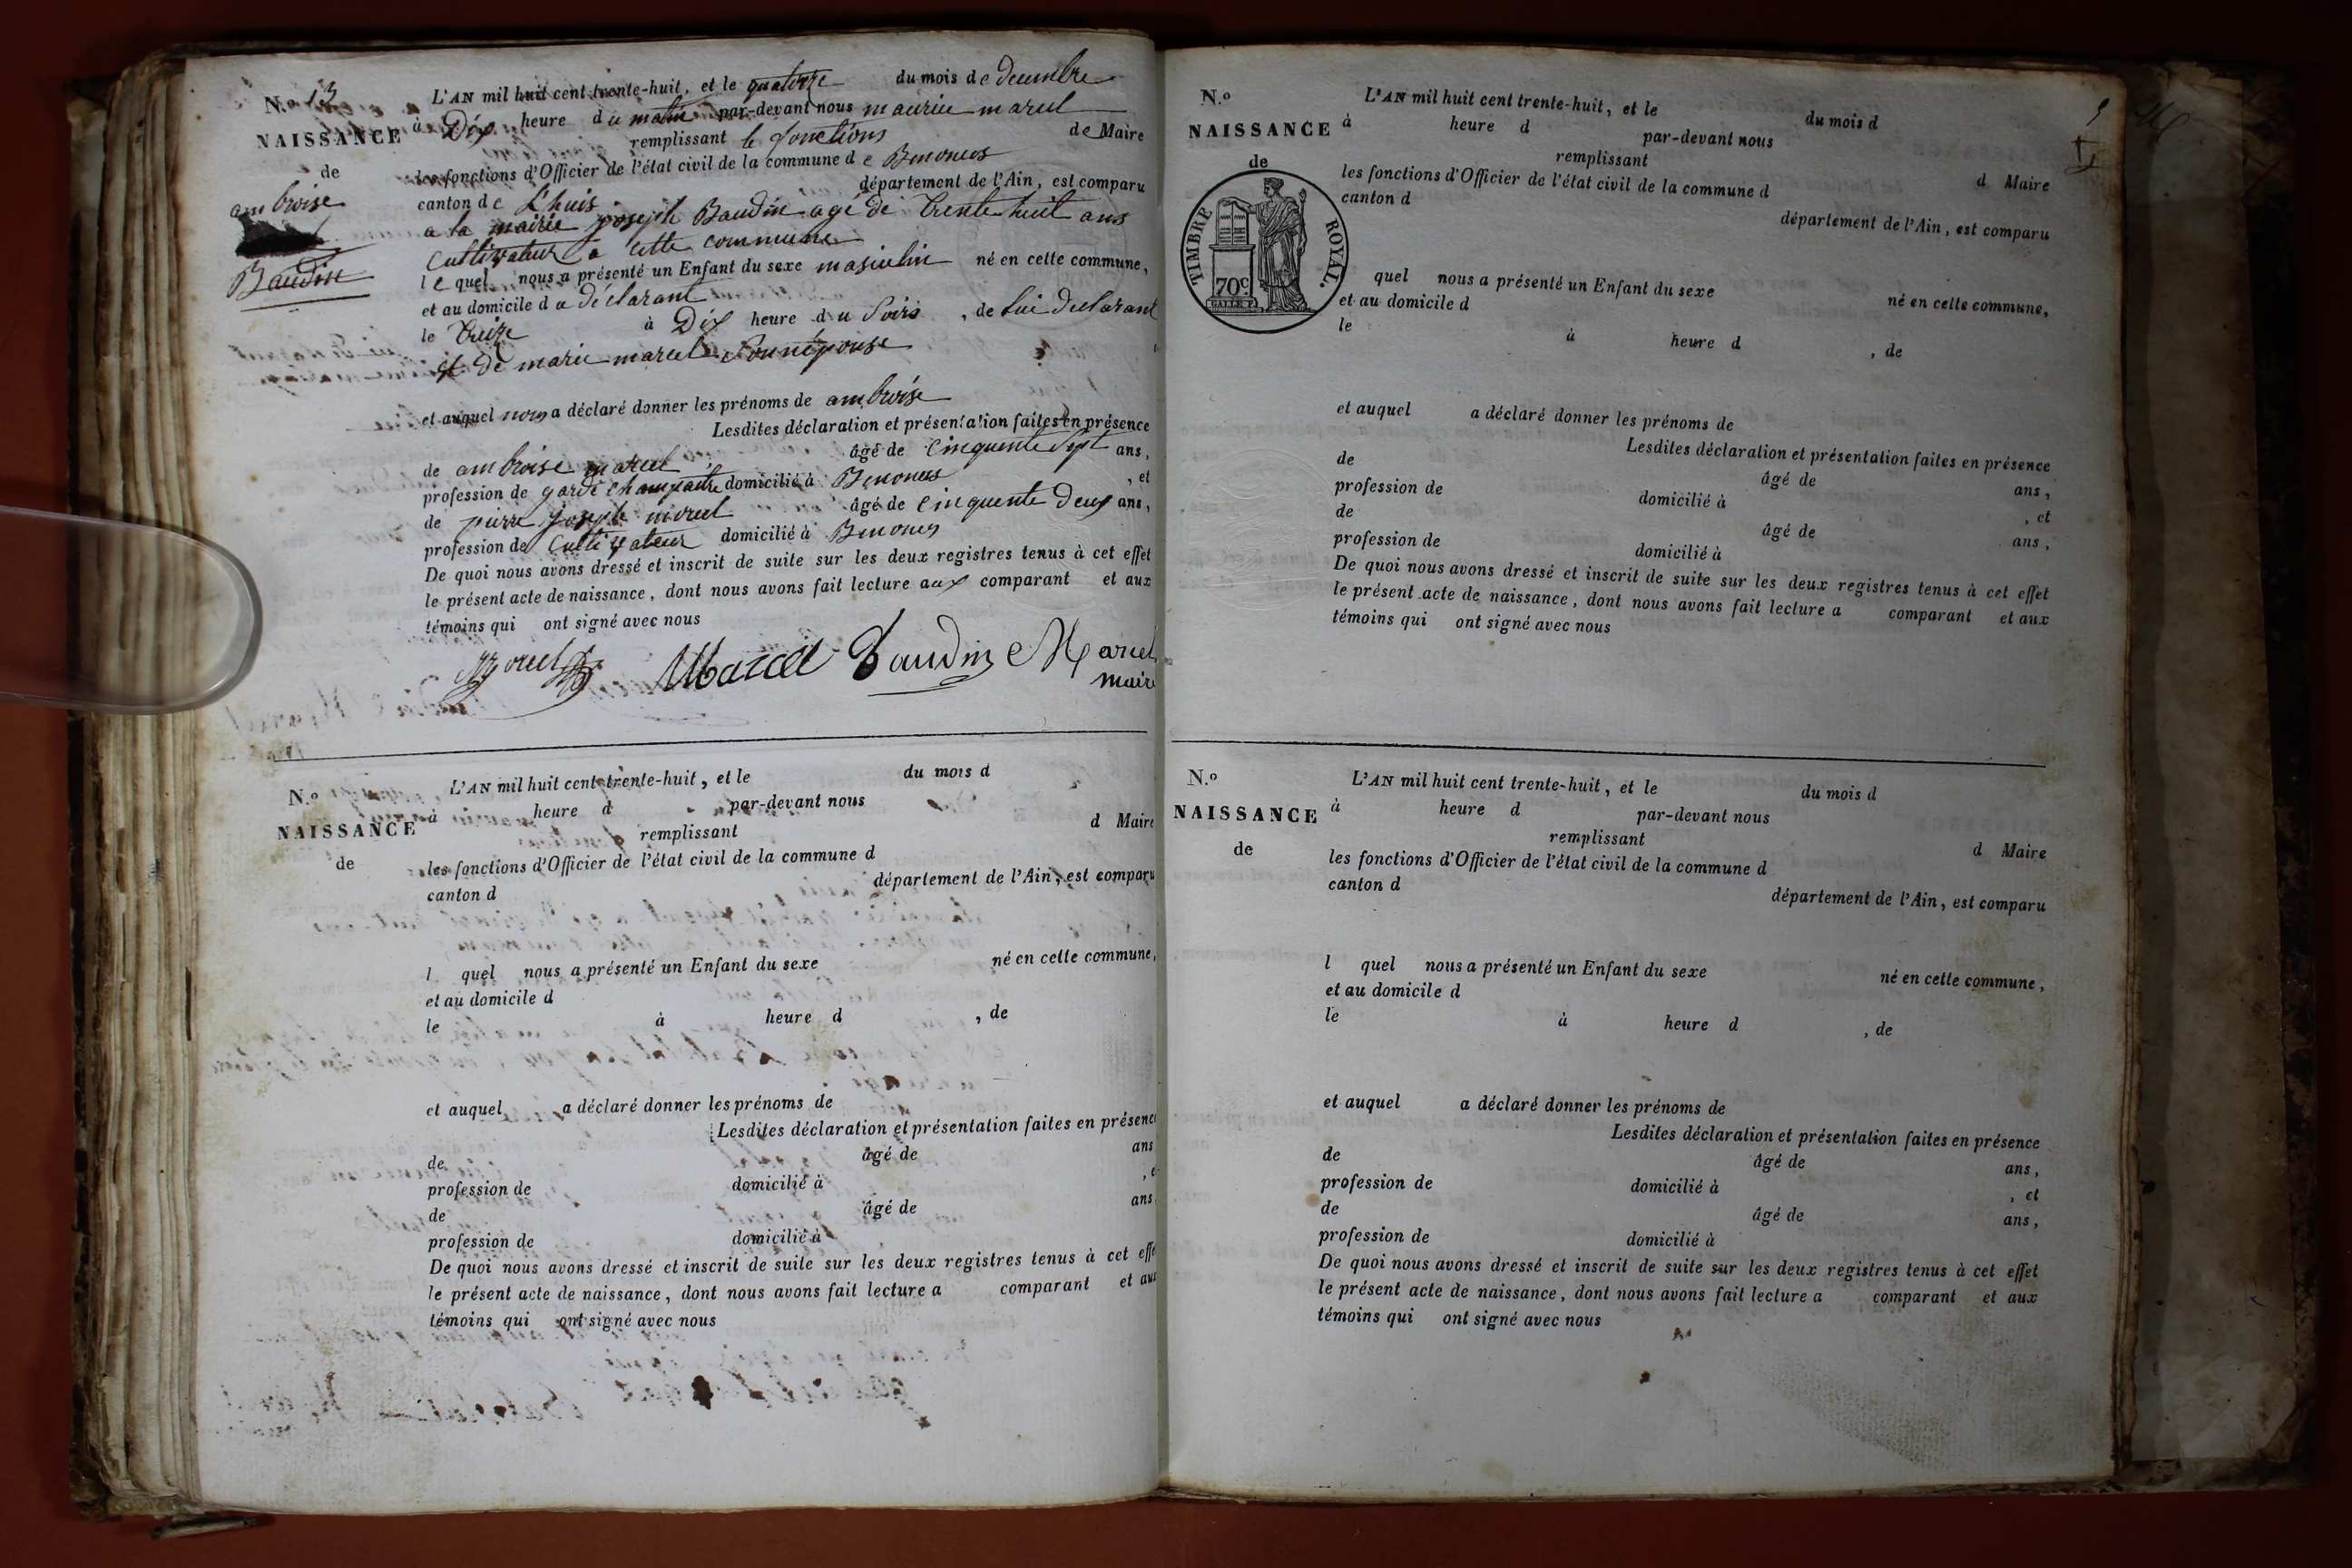 N.o 13
NAISSANCE
de
ambroise
Baudin
L'AN mil huit cent trente-huit, et le quatorze du mois de decembre
à Dix heure du matin par-devant nous maurice marcel
remplissant le fonctions de Maire
les fonctions d'Officier de l'état civil de la commune de Benonces
canton de Lhuis département de l'Ain, est comparu
a la mairie joseph Baudin agé de trente huit ans
Cultivateur a cette commune
le quel nous a présenté un Enfant du sexe masculin né en cette commune,
et au domicile du déclarant
le treize à Dix heure du Soirs, de lui declarant
et de marie marcel Son épouse
et auquel nous a déclaré donner les prénoms de ambroise
Lesdites déclaration et présentation faites en présence
de ambroise marcel, âgé de Cinquente Sept ans,
profession de garde champaitre domicilié à Benonces, et
de pierre joseph morel âgé de Cinquente Deux ans,
profession de Cultivateur domicilié à Benonces
De quoi nous avons dressé et inscrit de suite sur les deux registres tenus à cet effet
le présent acte de naissance, dont nous avons fait lecture aux comparant et aux
témoins qui ont signé avec nous
Morel Marcel Baudin Marcel
maire
N.o
NAISSANCE
de
L'AN mil huit cent trente-huit, et le du mois d
à heure d par-devant nous
remplissant d Maire
les fonctions d'Officier de l'état civil de la commune d
canton d département de l'Ain, est comparu
l quel nous a présenté un Enfant du sexe né en cette commune,
et au domicile d
le à heure d , de
et auquel a déclaré donner les prénoms de
Lesdites déclaration et présentation faites en présence
de âgé de ans
profession de domicilié à , e
de âgé de ans
profession de domicilié à
De quoi nous avons dressé et inscrit de suite sur les deux registres tenus à cet effe
le présent acte de naissance, dont nous avons fait lecture a comparant et aux
témoins qui ont signé avec nous
N.o
NAISSANCE
de
TIMBRE ROYAL.
70c
L'AN mil huit cent trente-huit, et le du mois d
à heure d par-devant nous
remplissant d Maire
les fonctions d'Officier de l'état civil de la commune d
canton d département de l'Ain, est comparu
quel nous a présenté un Enfant du sexe né en cette commune,
et au domicile d
le à heure d , de
et auquel a déclaré donner les prénoms de
Lesdites déclaration et présentation faites en présence
de âgé de ans,
profession de domicilié à , et
de âgé de ans,
profession de domicilié à
De quoi nous avons dressé et inscrit de suite sur les deux registres tenus à cet effet
le présent acte de naissance, dont nous avons fait lecture a comparant et aux
témoins qui ont signé avec nous
N.o
NAISSANCE
de
L'AN mil huit cent trente-huit, et le du mois d
à heure d par-devant nous
remplissant d Maire
les fonctions d'Officier de l'état civil de la commune d
canton d département de l'Ain, est comparu
l quel nous a présenté un Enfant du sexe né en cette commune,
et au domicile d
le à heure d , de
et auquel a déclaré donner les prénoms de
Lesdites déclaration et présentation faites en présence
de âgé de ans,
profession de domicilié à , et
de âgé de ans,
profession de domicilié à
De quoi nous avons dressé et inscrit de suite sur les deux registres tenus à cet effet
le présent acte de naissance, dont nous avons fait lecture a comparant et aux
témoins qui ont signé avec nous